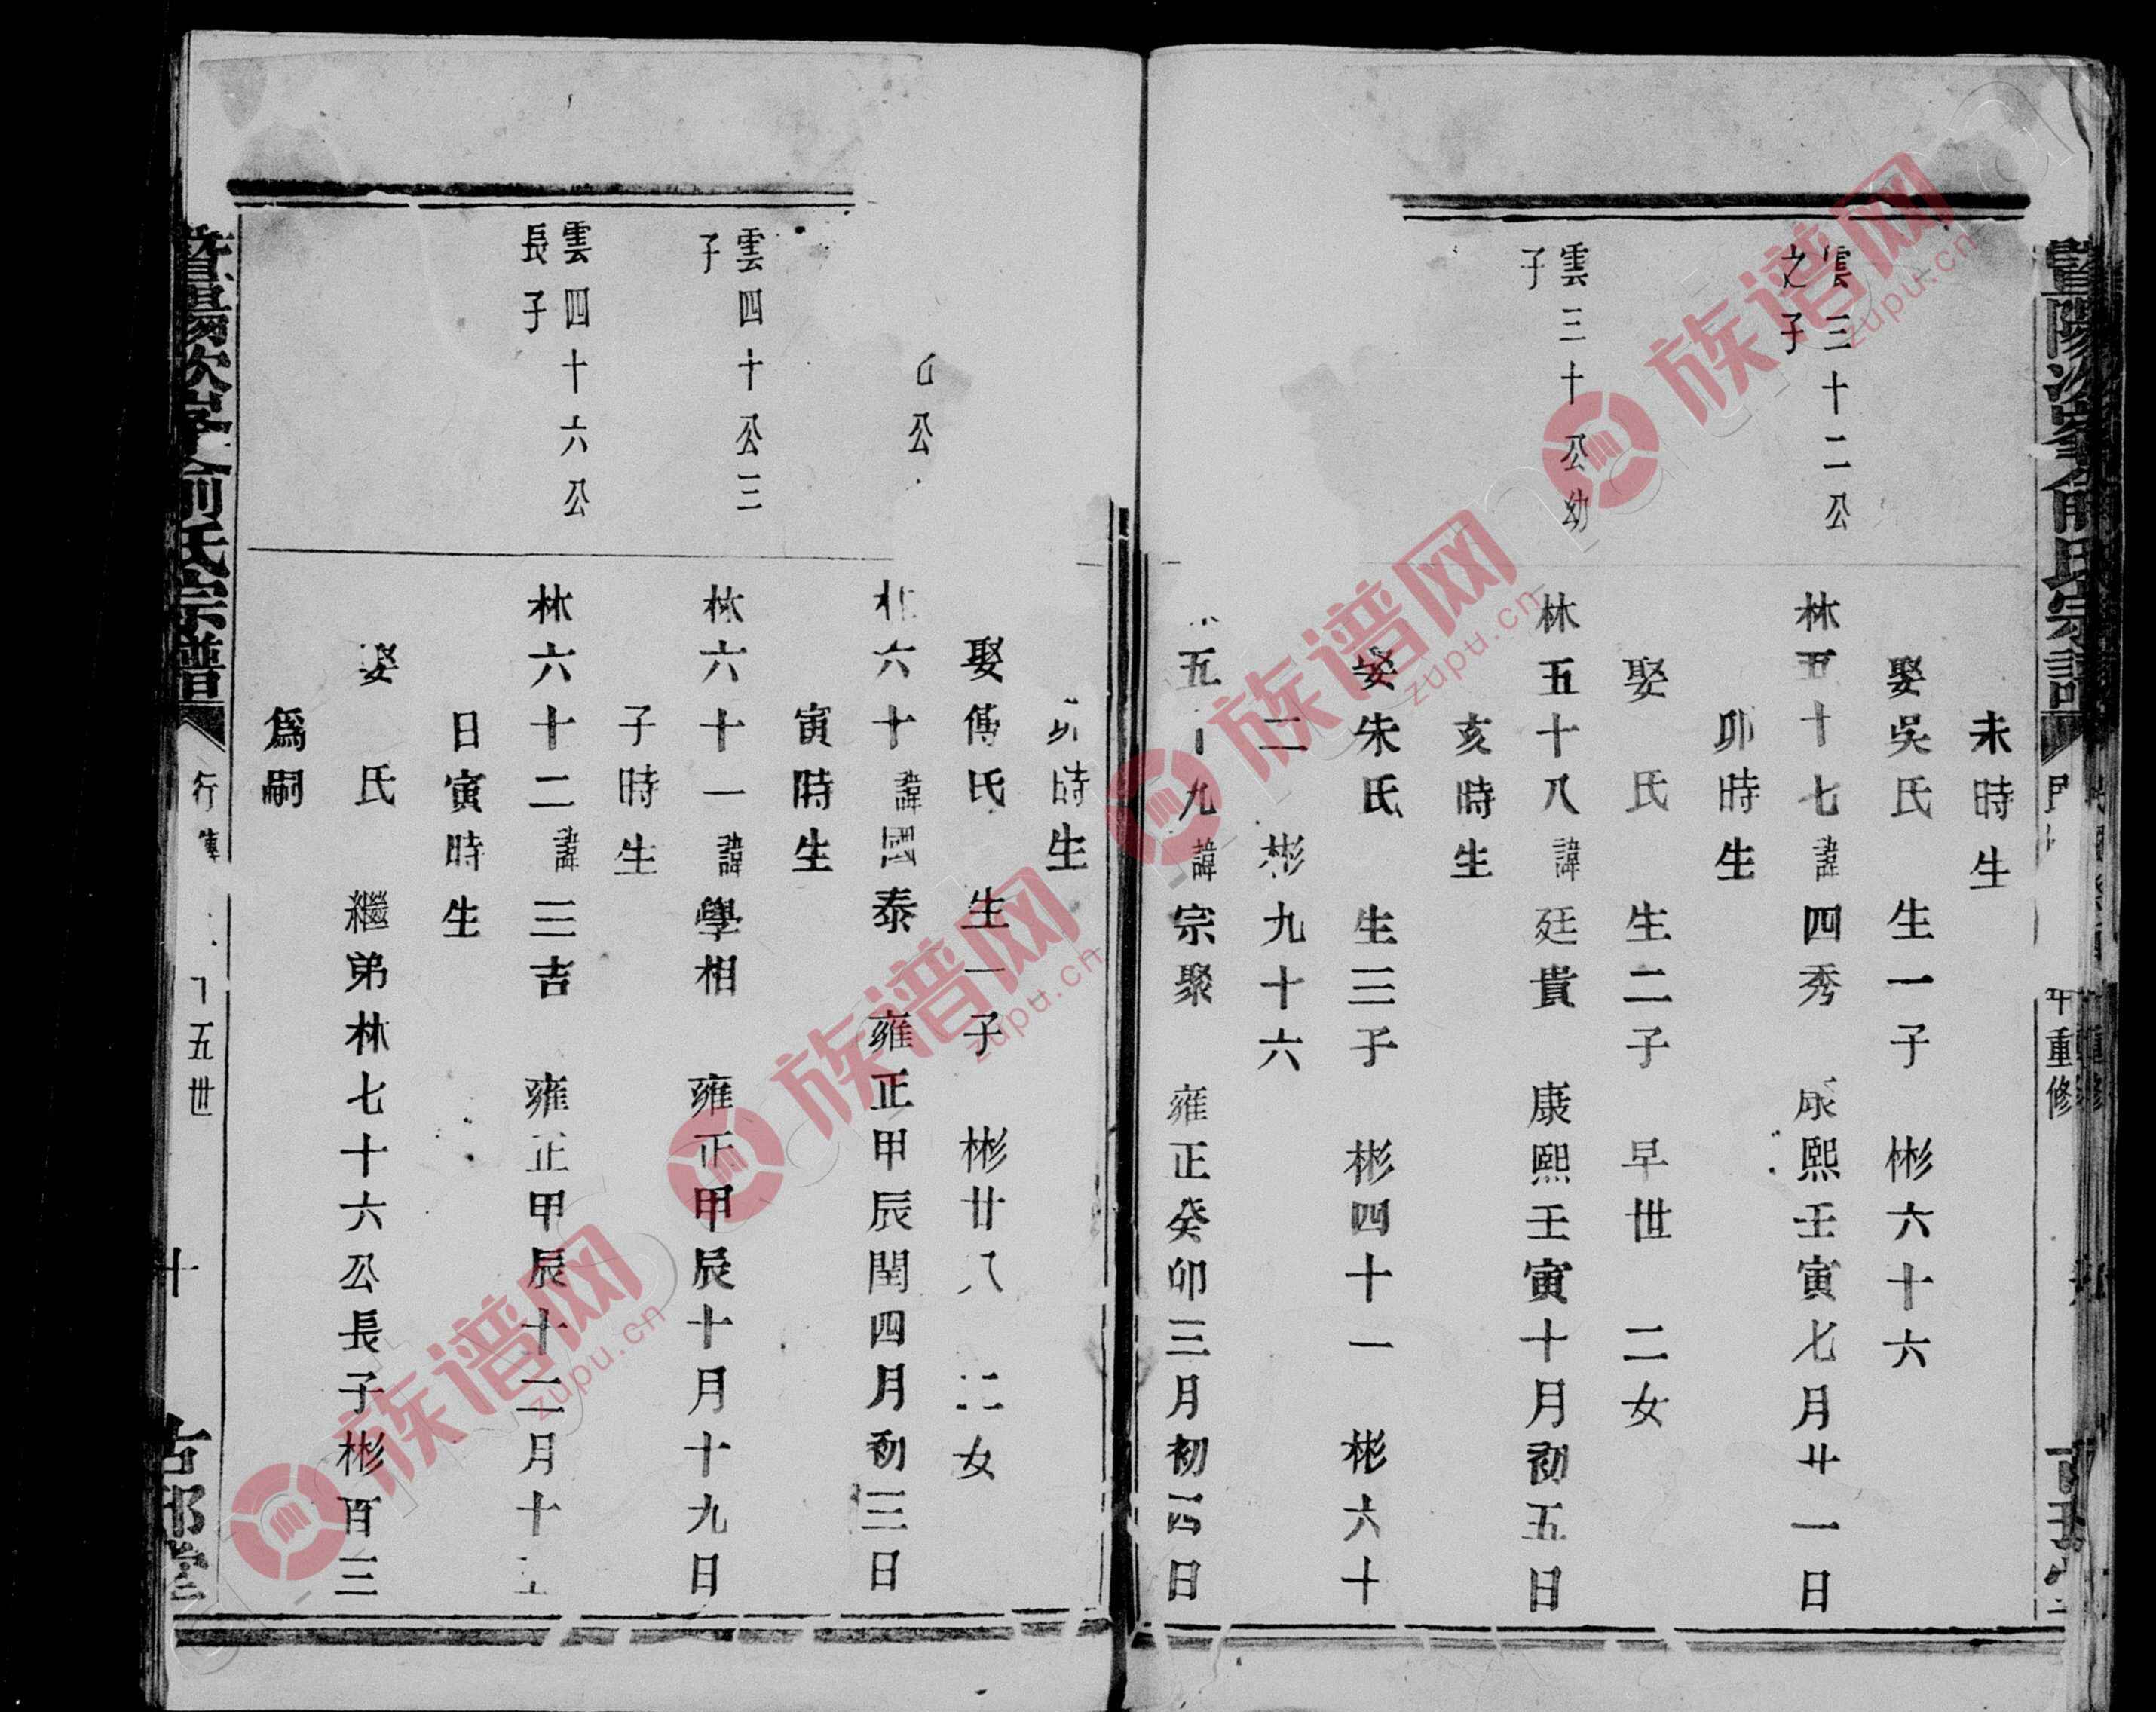 未時生
娶吳氏 生一子 彬六十六
雲三十二公
之子
林五十七諱四秀 康熙壬寅七月廿一日
卯時生
娶 氏 生二子 早世 二女
雲三十公幼
子
林五十八諱廷貴 康熙壬寅十月初五日
亥時生
娶朱氏 生三子 彬四十一 彬六十
二 彬九十六
五 九諱宗聚 雍正癸卯三月初四日
重修
卯時生
娶傅氏 生一子 彬廿八 二女
公
六十諱國泰 雍正甲辰閏四月初三日
寅時生
雲四十公三
子
林六十一諱學相 雍正甲辰十月十九日
子時生
雲四十六公
長子
林六十二諱三吉 雍正甲辰十二月十
日寅時生
娶 氏 繼弟林七十六公長子彬百三
爲嗣
暨陽次峯俞氏宗譜 行傳 五世 十
族谱网 zupu.cn
族谱网 zupu.cn
族谱网 zupu.cn
族谱网 zupu.cn